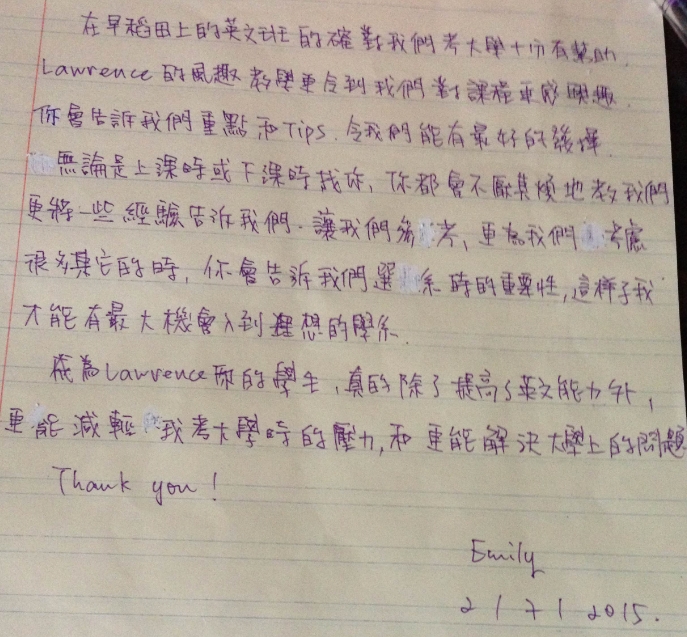 在早稻田上的英文班的確對我們考大學十分有幫助.
Lawrence 的風趣教學更令到我們對課程更感興趣.
你會告訴我們重點和Tips. 令我們能有最好的發揮.
無論是上課時或下課時找你, 你都會不厭其煩地教我們
更將一些經驗告訴我們. 讓我們 考, 更為我們 考慮
很多其它的時, 你會告訴我們選 系時的重要性, 這樣子我
才能有最大機會入到理想的學系.
成為Lawrence你的學生, 真的除了提高了英文能力外,
更能減輕我考大學時的壓力, 和更能解決大學上的問題
Thank you!
Emily
2 / 7 / 2015.